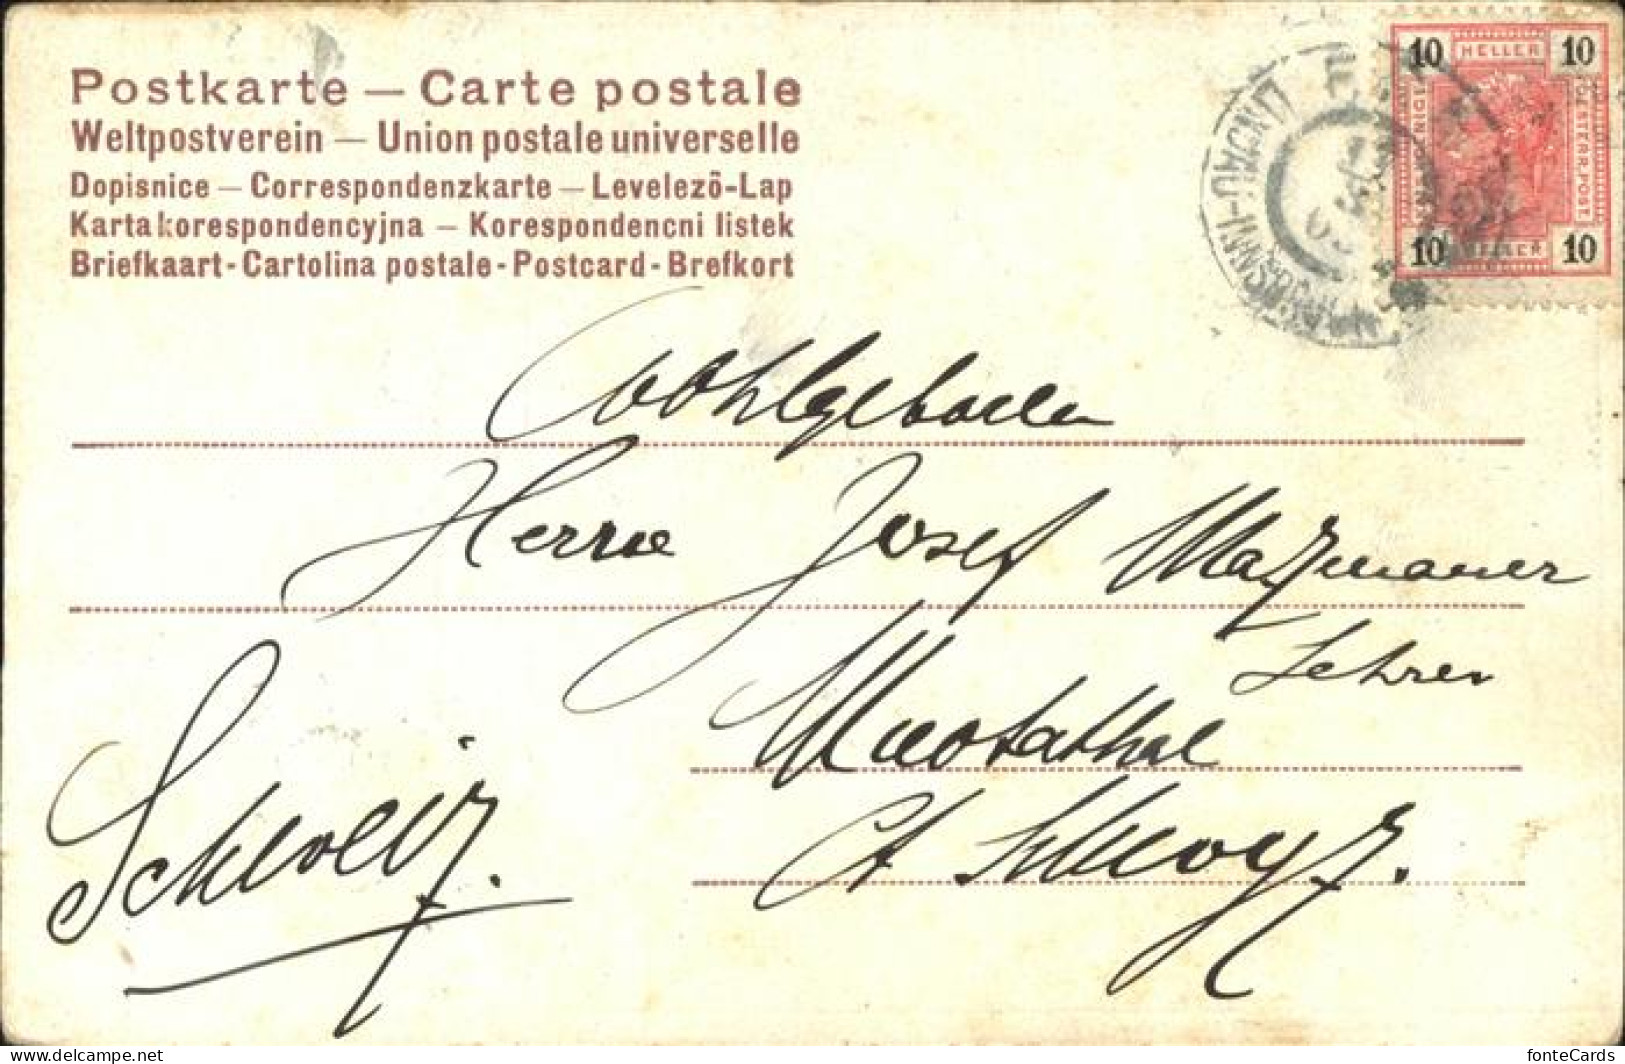 Postkarte — Carte postale
Weltpostverein — Union postale universelle
Dopisnice — Correspondenzkarte — Levelezö-Lap
Karta korespondencyjna — Korespondencni listek
Briefkaart - Cartolina postale - Postcard - Brefkort
10 HELLER 10
OESTERR. POST
10 HELLER 10
Wohlgeboren
Herrn Josef
Lehrer
Muotathal
Schweiz.
Ct Schwyz.
fonteCards